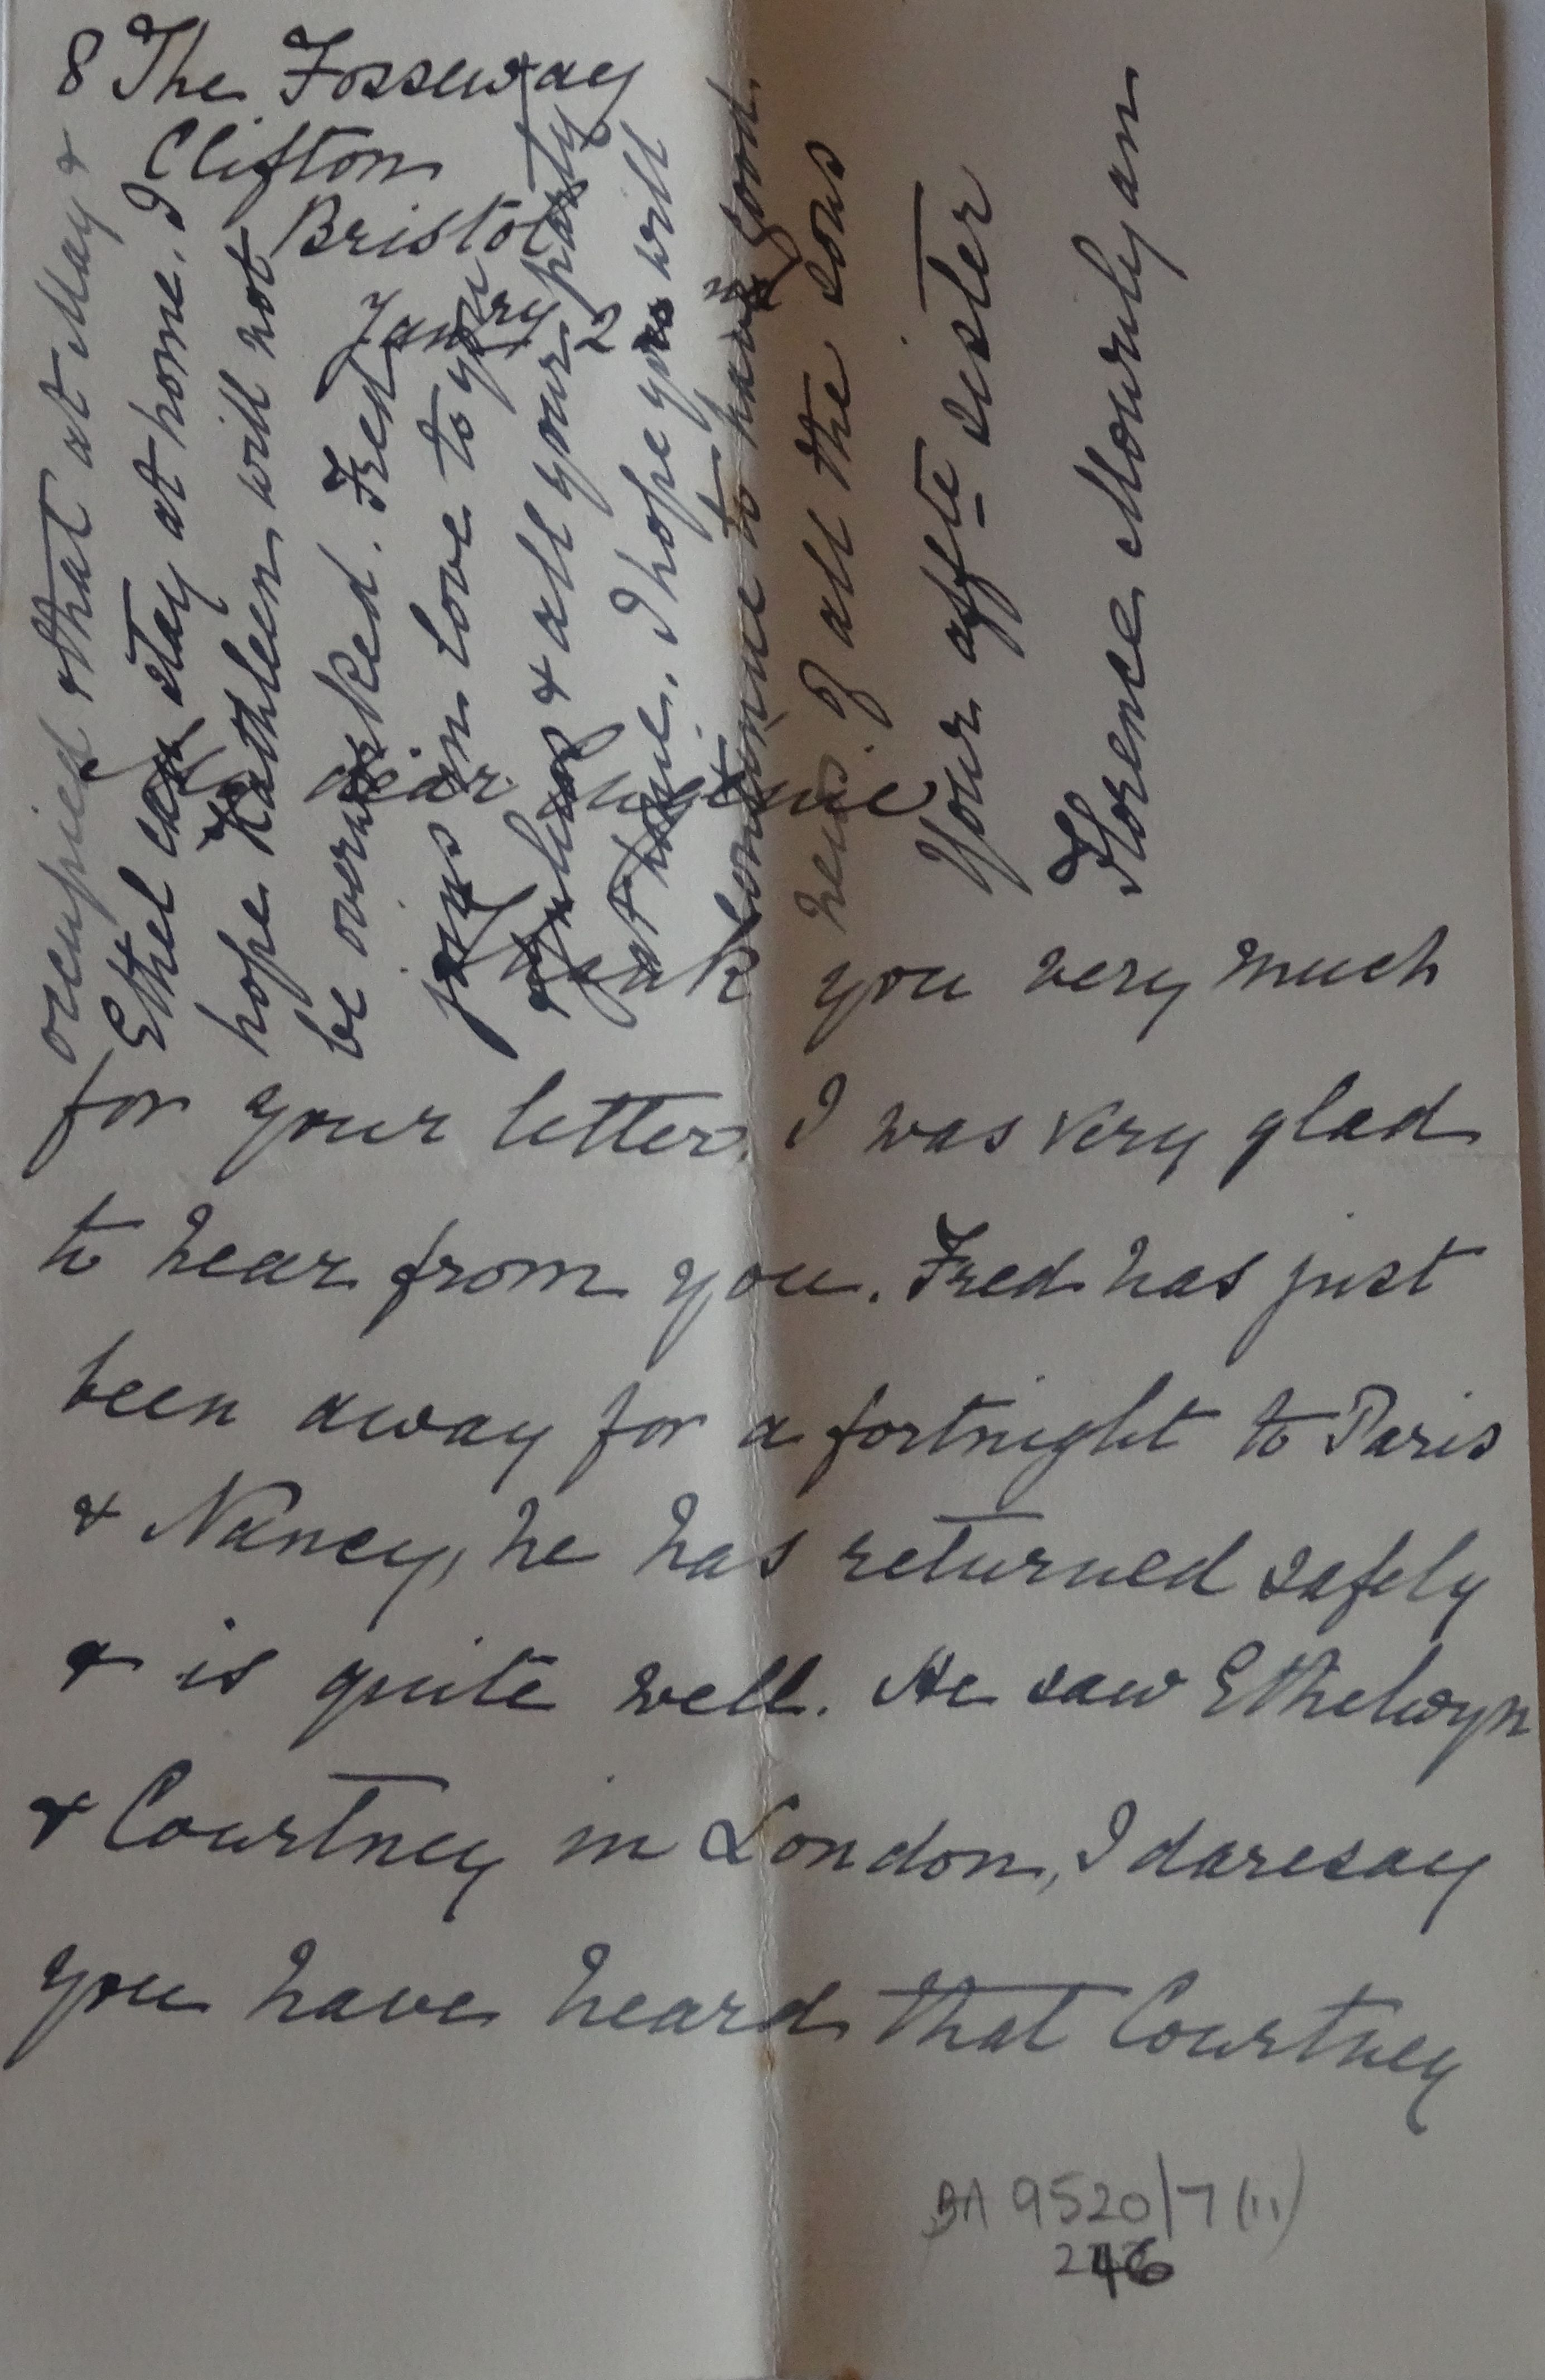 8 The Fosseway
Clifton
Bristol
Janry 2
My dear Eugenie
Thank you very much
for your letter. I was very glad
to hear from you. Fred has just
been away for a fortnight to Paris
& Nancy, he has returned safely
& is quite well. He saw Ethelwyn
& Courtney in London, I daresay
you have heard that Courtney
BA 9520/7 (11)
246
occupied & that at May &
Ethel can stay at home. I
hope Kathleen will not
be overworked. Fred
joins in love to you
& all your party
at home. I hope you will
continue to have good
news of all the sons
Your affte sister
Florence Mourilyan